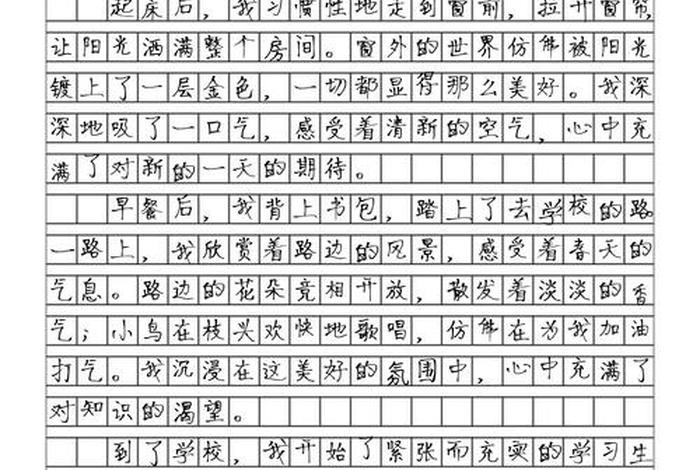 起床后，我习惯性地走到窗前，拉开窗帘，
让阳光洒满整个房间。窗外的世界仿佛被阳光
镀上了一层金色，一切都显得那么美好。我深
深地吸了一口气，感受着清新的空气，心中充
满了对新的一天的期待。
早餐后，我背上书包，踏上了去学校的路。
一路上，我欣赏着路边的风景，感受着春天的
气息。路边的花朵竞相开放，散发着淡淡的香
气；小鸟在枝头欢快地歌唱，仿佛在为我加油
打气。我沉浸在这美好的氛围中，心中充满了
对知识的渴望。
到了学校，我开始了紧张而充实的学习生